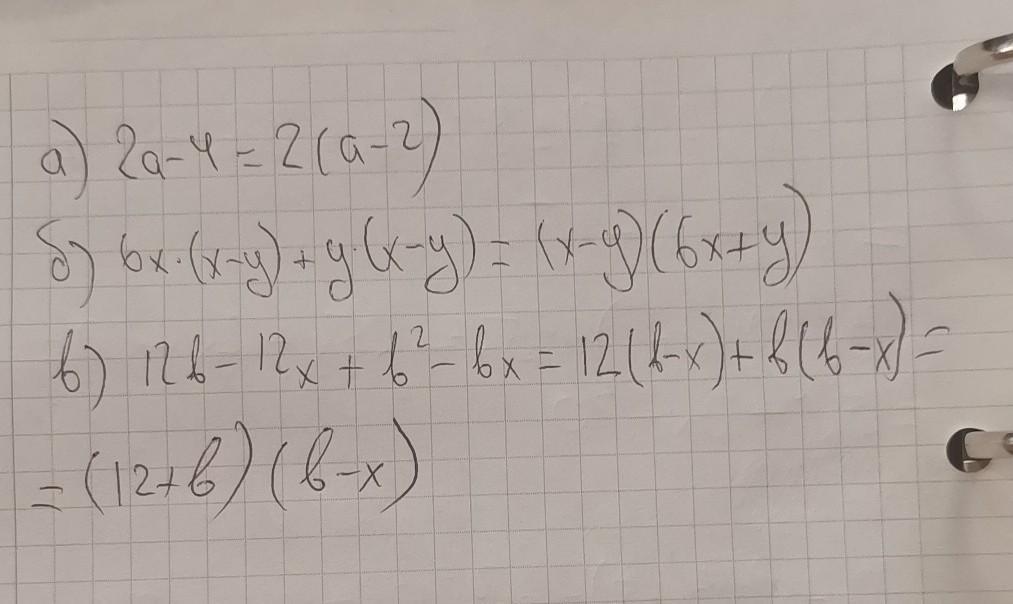 а) 2a-4=2(a-2)
б) 6x·(x-y)+y·(x-y)=(x-y)(6x+y)
в) 12b-12x+b²-bx=12(b-x)+b(b-x)=
=(12+b)(b-x)